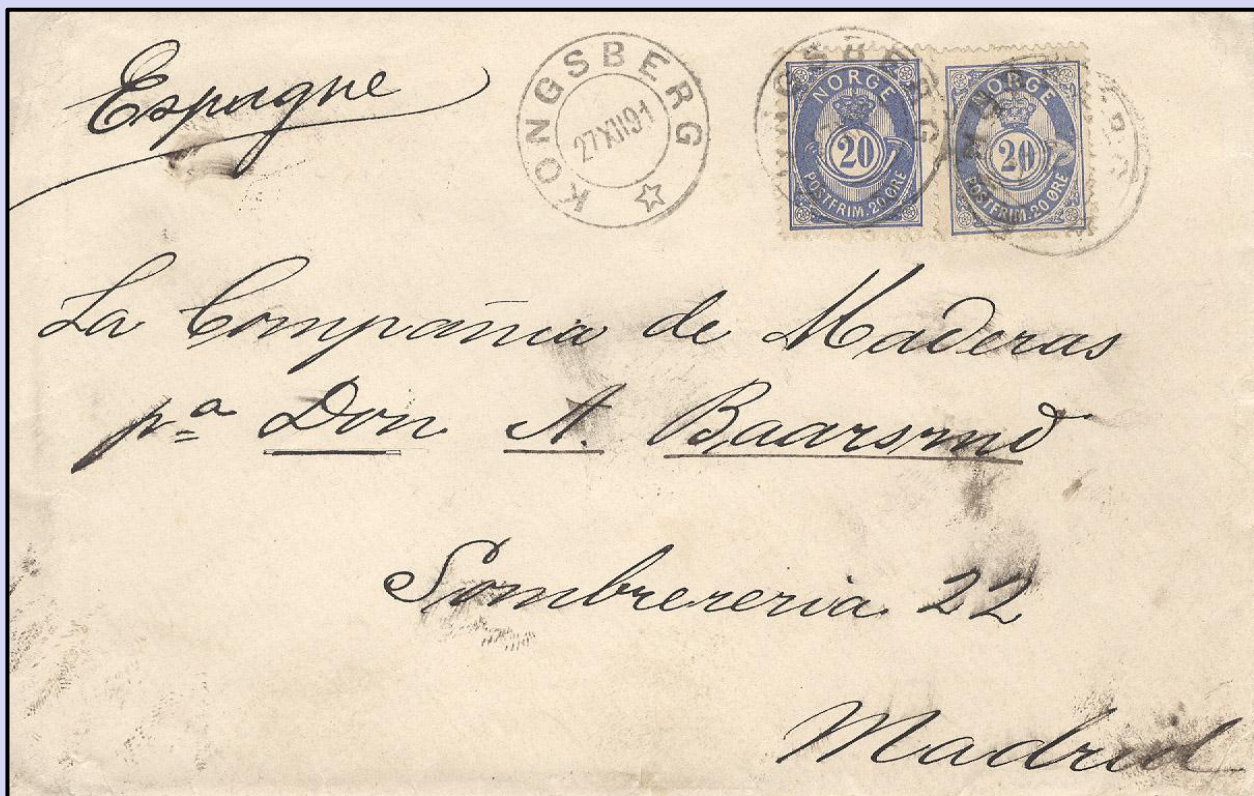 Espagne
KONGSBERG
27 XII 91
NORGE
20
POSTFRIM. 20 ØRE
NORGE
20
POSTFRIM. 20 ØRE
La Compañia de Maderas
pª Don A.
Sombrereria 22
Madrid